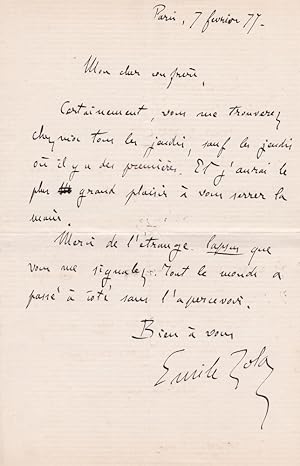 Paris, 7 février 77.
Mon cher confrère,
Certainement, vous me trouverez
chez moi tous les jeudis, sauf les jeudis
où il y a des premières. Et j'aurai le
plus grand plaisir à vous serrer la
main.
Merci de l'étrange lapsus que
vous me signalez. Tout le monde a
passé à côté sans l'apercevoir.
Bien à vous
Emile Zola